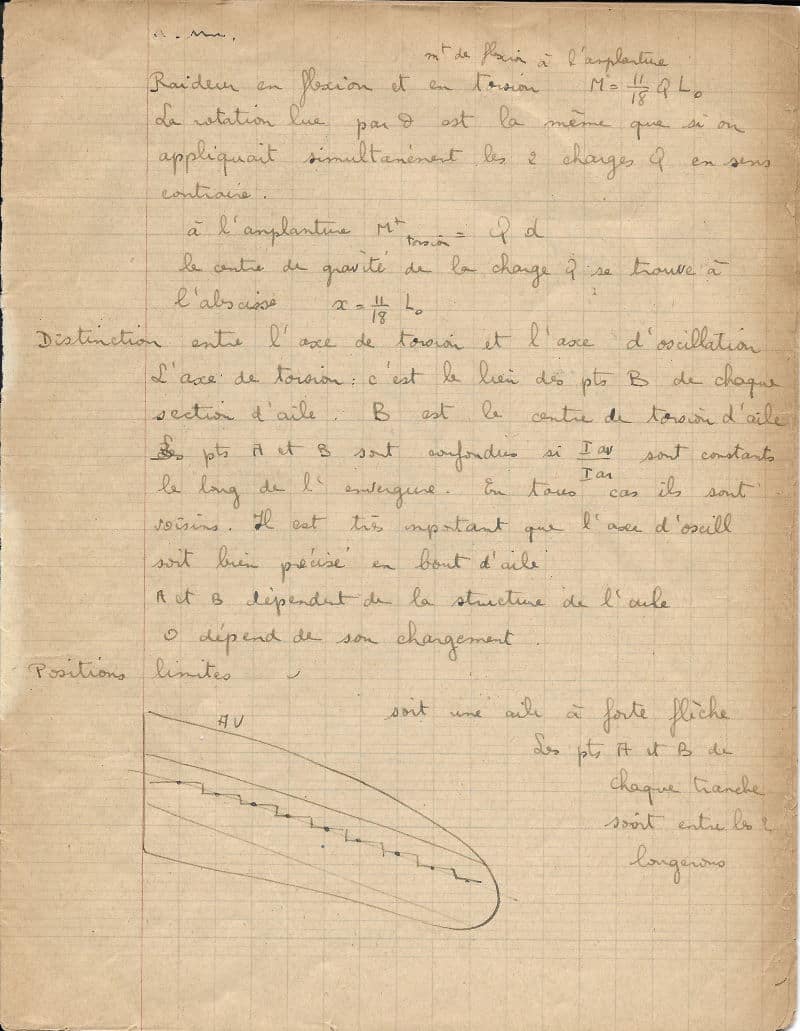 mt de flexion à l'anplanture
Raideur en flexion et en torsion M = 11/18 Q L0
La rotation lue par est la même que si on
appliquait simultanément les 2 charges Q en sens
contraire.
à l'anplanture Mt torsion = Q d
le centre de gravité de la charge Q se trouve à
l'abscisse x = 11/18 L0
Distinction entre l'axe de torsion et l'axe d'oscillation
L'axe de torsion : c'est le lien des pts B de chaque
section d'aile. B est le centre de torsion d'aile
Les pts A et B sont confondus si I av / I ar sont constants
le long de l'envergure. En tous cas ils sont
voisins. Il est très mportant que l'axe d'oscill
soit bien précisé en bout d'aile
A et B dépendent de la structure de l'aile
O dépend de son chargement.
Positions limites
soit une aile à forte flèche
AV
Les pts A et B de
chaque tranche
soit entre les 2
longerons